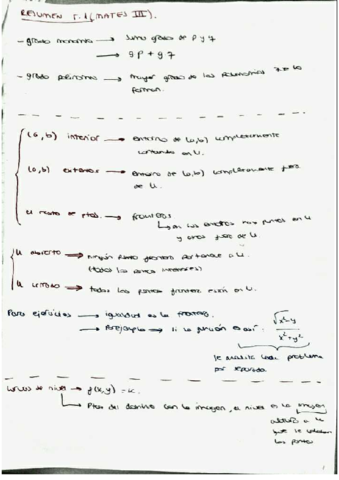 RESUMEN T.1 (MATES III).
- grado monomio → suma grado de p y q
→ gp + gq
- grado polinomio → mayor grado de los monomios que lo
forman.
(a,b) interior → entorno de (a,b) completamente
contenido en U.
(a,b) exterior → entorno de (a,b) completamente fuera
de U.
U resto de ptos. → frontera
→ en los entornos hay puntos en U
y otros fuera de U
U abierto → ningún punto frontera pertenece a U.
(todos los puntos interiores)
U cerrado → todos los puntos frontera están en U.
Para ejercicios → igualdad es la frontera.
→ Por ejemplo → si la función es así: √x²-y / x²+y²
se analiza cada problema
por separado
Curvas de nivel → f(x,y) = k.
→ Ptos del dominio con la imagen, el nivel es la imagen
que se
los puntos